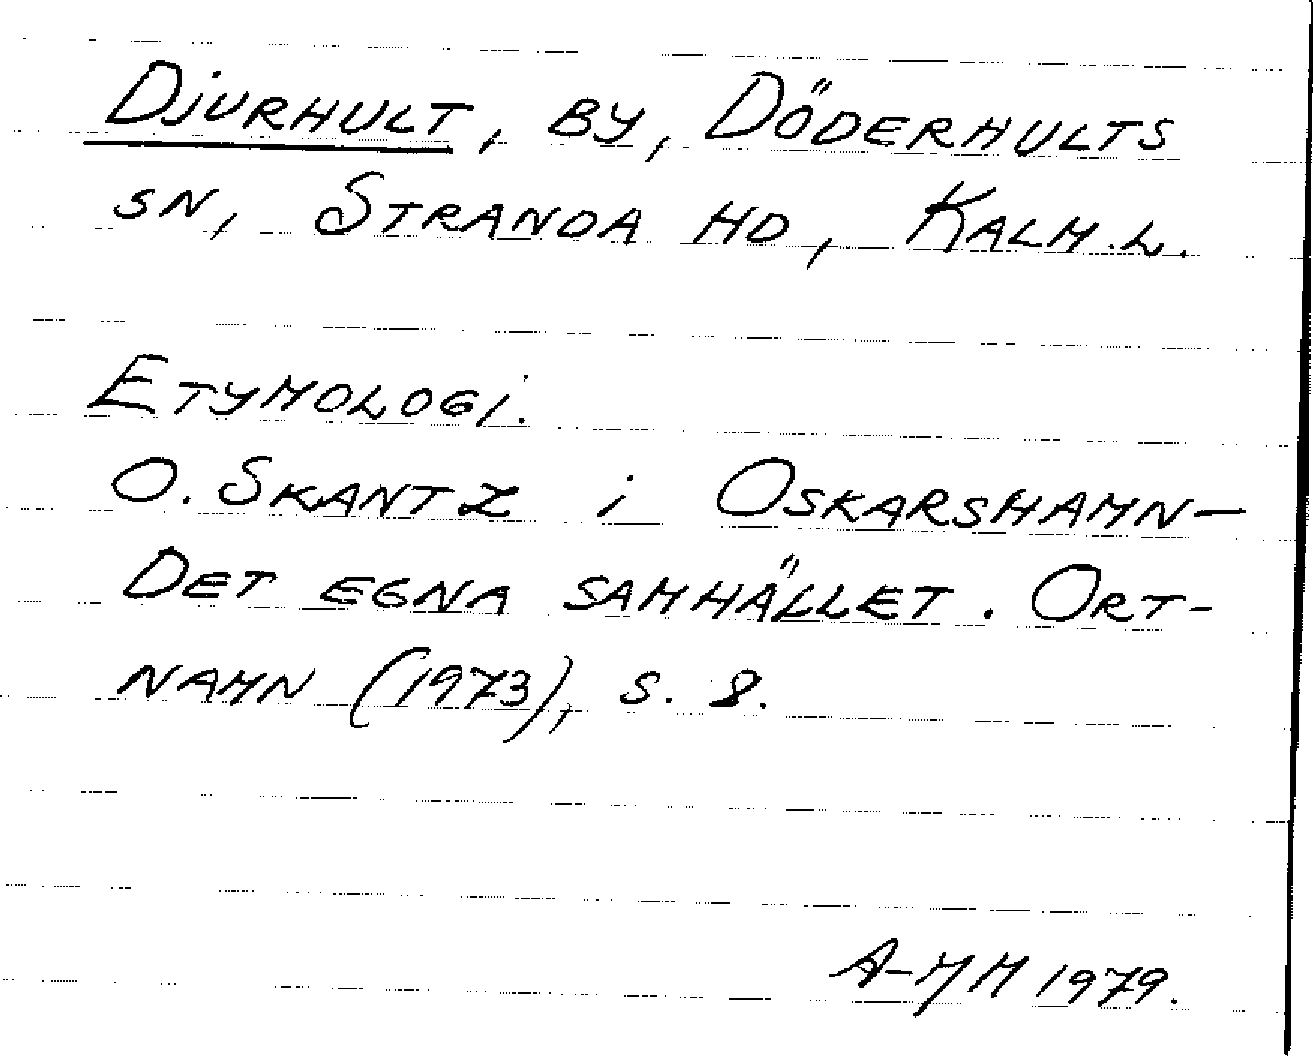 Djurhult, by, Döderhults
sn, Stranda hd, Kalm. l.
Etymologi.
O. Skantz i Oskarshamn-
Det egna samhället. Ort-
namn (1973), s. 8.
1979.